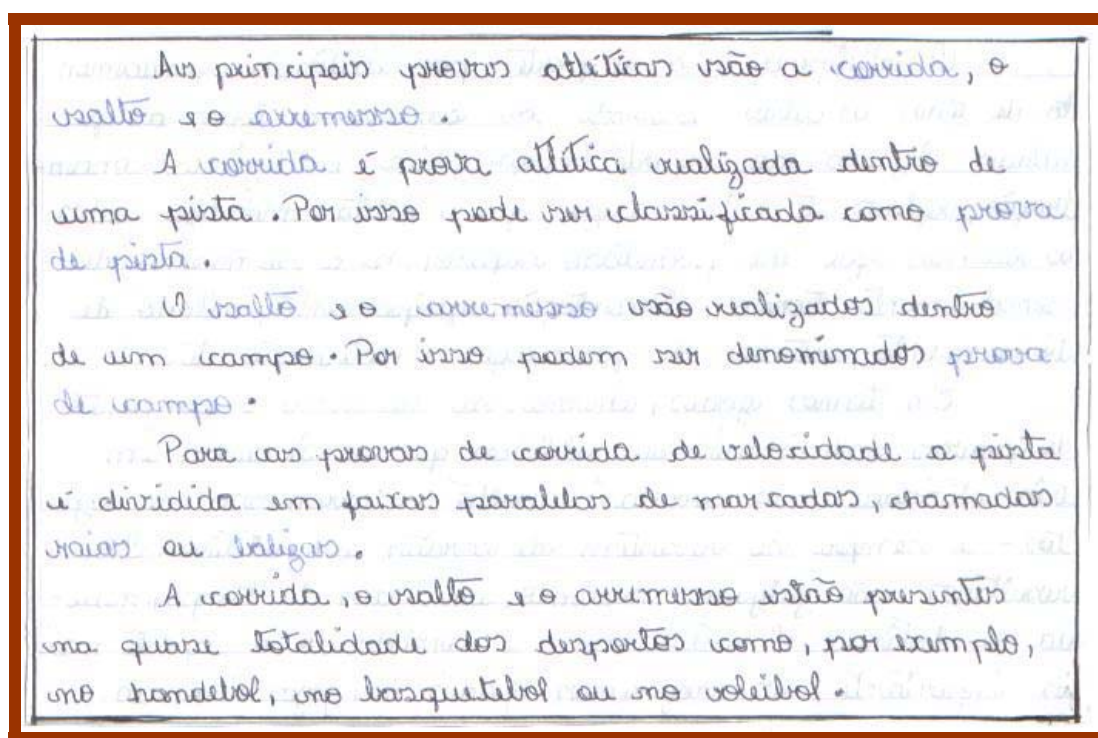 As principais provas atléticas são a corrida, o
salto e o arremesso.
A corrida é prova atlética realizada dentro de
uma pista. Por isso pode ser classificada como prova
de pista.
O salto e o arremesso são realizados dentro
de um campo. Por isso podem ser denominados provas
de campo.
Para as provas de corrida de velocidade, a pista
é dividida em faixas paralelas demarcadas, chamadas
raias ou balizas.
A corrida, o salto e o arremesso estão presentes
na quase totalidade dos desportos como, por exemplo,
no handebol, no basquetebol ou no voleibol.